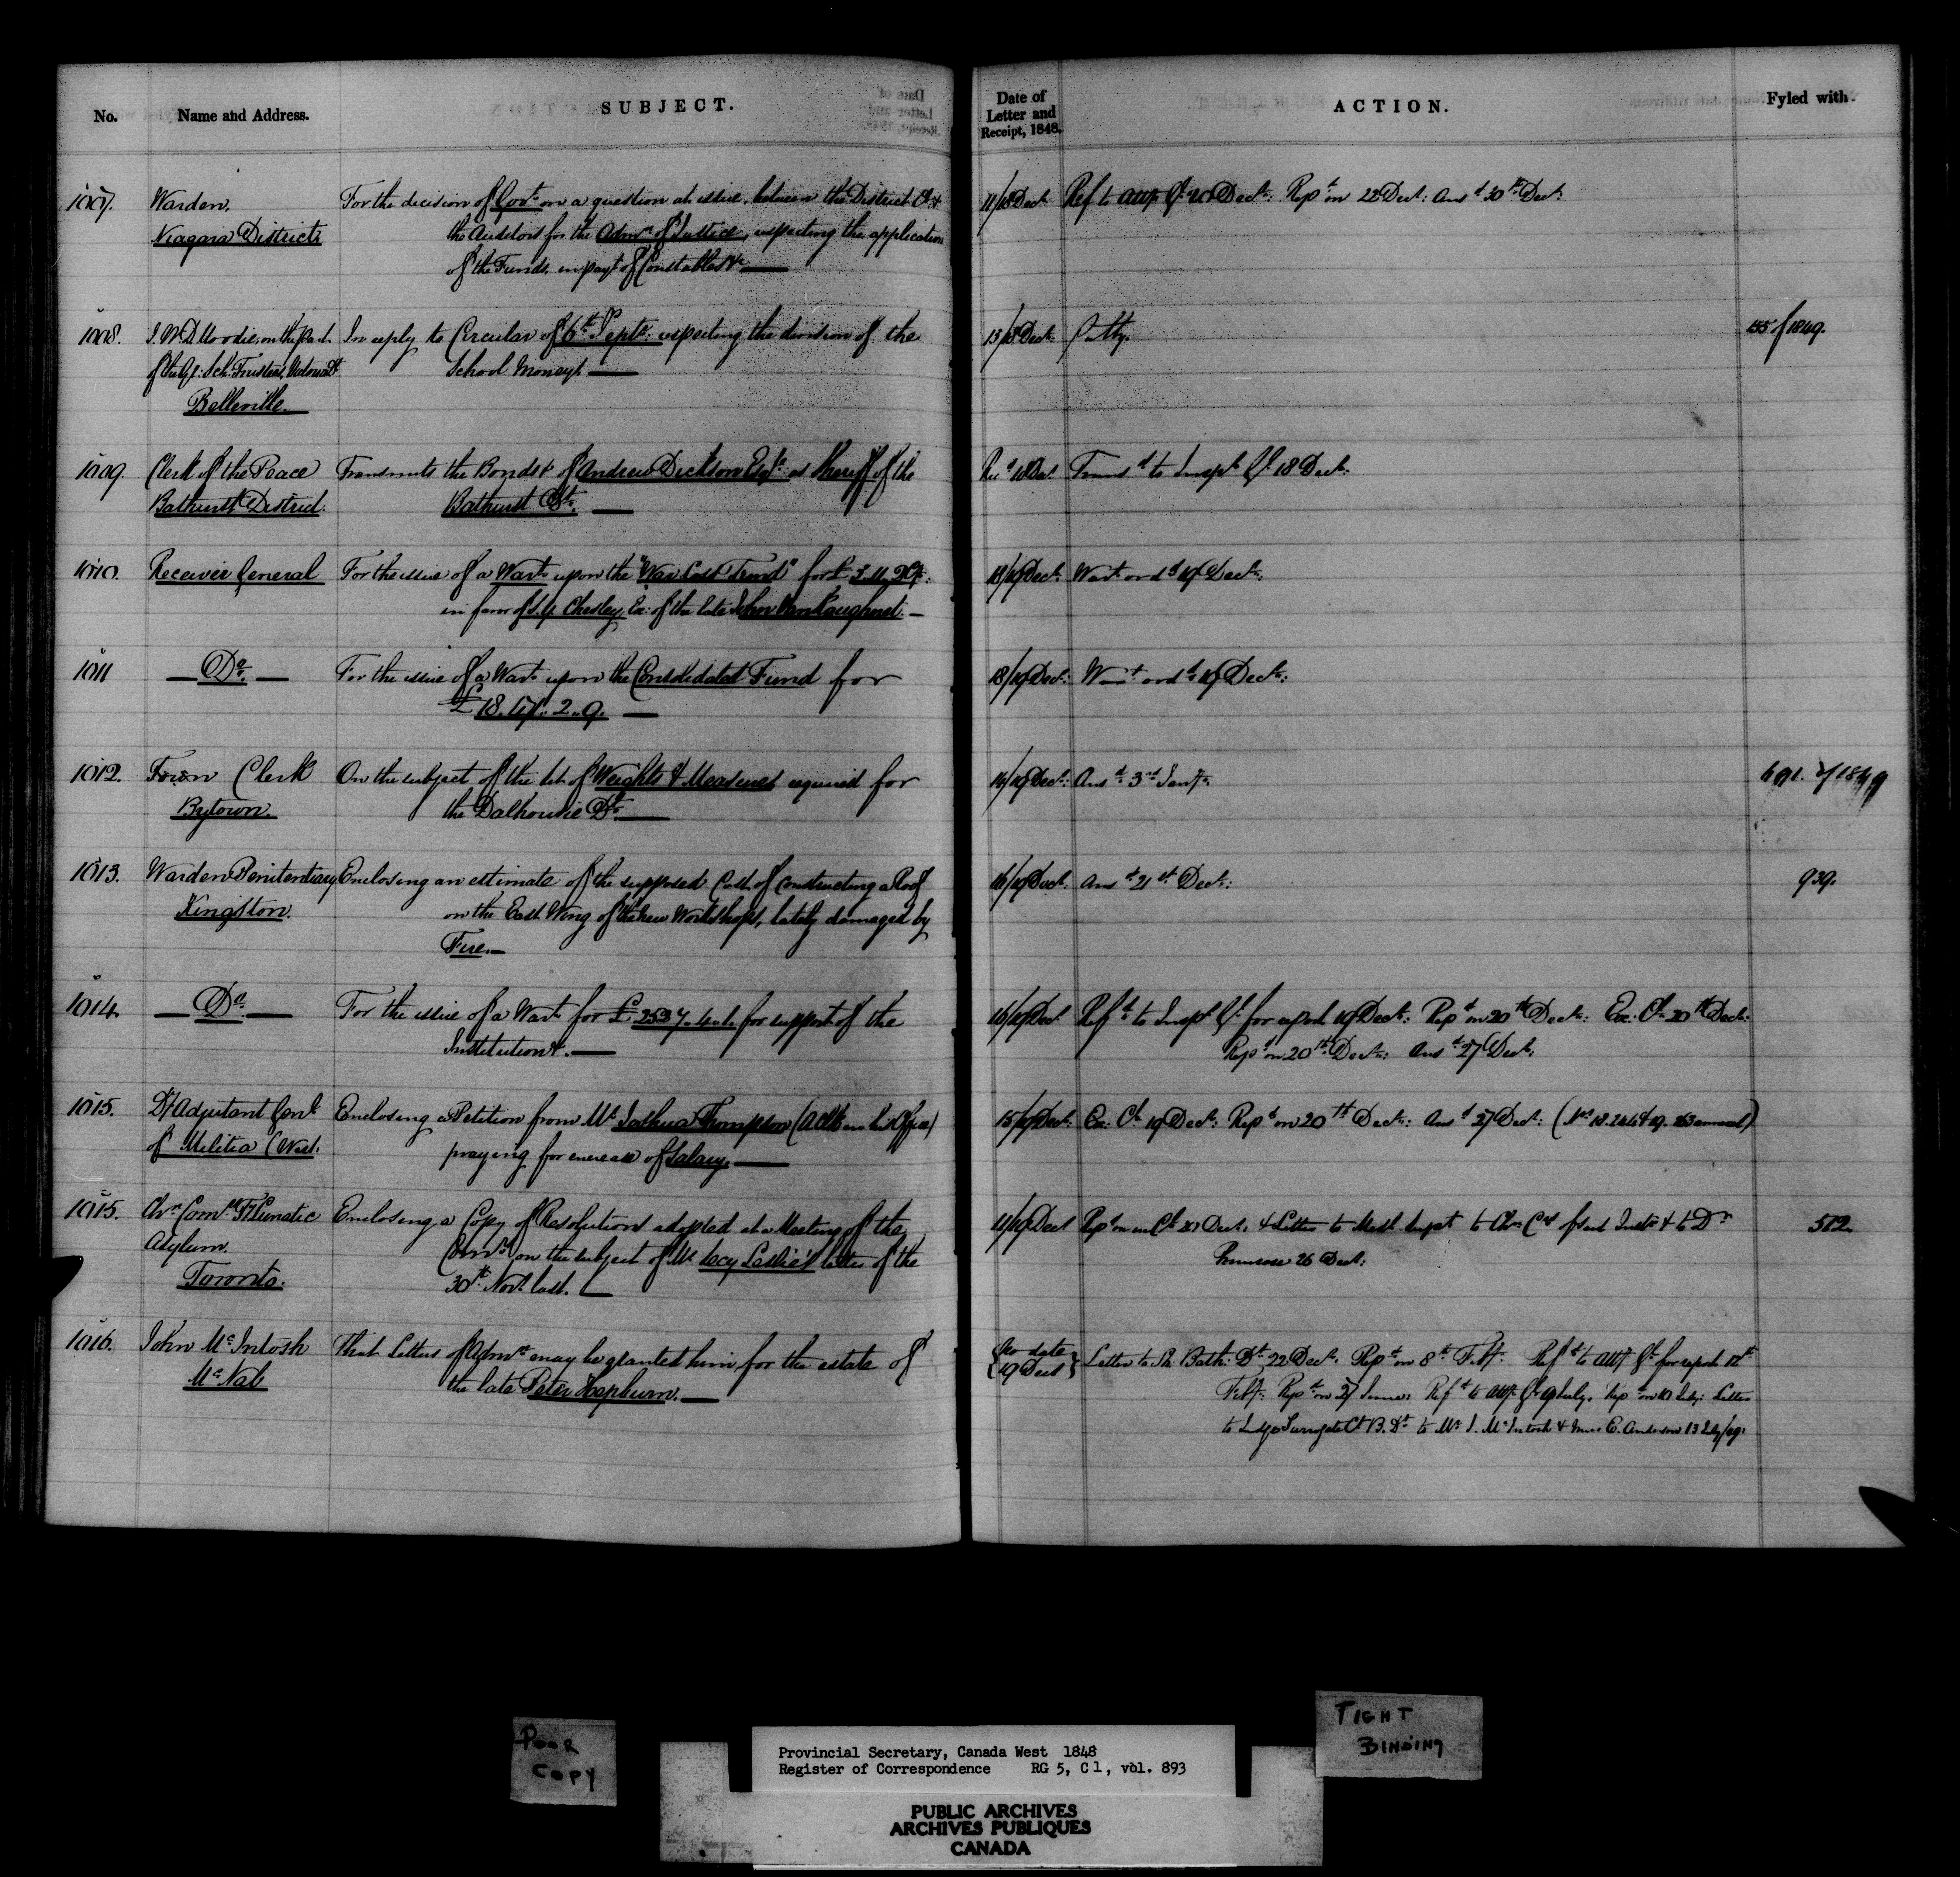 No.
Name and Address.
SUBJECT.
Date of
Letter and
Receipt, 1848.
ACTION.
Fyled with.
1007.
Warden,
Niagara District
For the decision of Govt on a question at issue, between the District Cl. &
the Auditors for the Admn of Justice, respecting the application
of the Funds, in payt of Constables &c
11/18 Dect
Ref to Atty Gl 20 Dect: Repd on 22 Dect: Ansd 30th Dect:
1008.
J. W. D. Moodie, on the part
of the Gl: Sch: Trustees, Victoria Dt
Belleville.
In reply to Circular of 6th Septr: respecting the division of the
School Moneys.
13/18 Dect:
155 of 1849.
1009.
Clerk of the Peace
Bathurst District.
Transmits the Bonds &c of Andrew Dickson Esqr: as Sheriff of the
Bathurst Dt.
Recd 18 Dect
Transd to Inspr Gl: 18 Dect:
1010.
Receiver General
For the issue of a Wart upon the "War Loss Fund" for £
in favor of S. Y. Chesley, Ex: of the late John VanKoughnet.
18/19 Dect:
Wart ordd 19 Dect:
1011
Do.
For the issue of a Wart upon the Consolidated Fund for
18/19 Dect:
Wart ordd 19 Dect:
1012.
Town Clerk
Bytown.
On the subject of the set of Weights & Measures required for
the Dalhousie Dt.
14/19 Dect:
Ansd 3rd Jany.
691. of 1849
1013.
Warden Penitentiary
Kingston.
Enclosing an estimate of the supposed Cost of constructing a Roof
on the East Wing of the new Workshops, lately damaged by
Fire.
16/19 Dect:
Ansd 21st Dect:
939.
1014.
Do.
For the issue of a Wart for £ 2537.4.1. for support of the
Institution &c.
16/19 Dect
Refd to Inspr Gl for report 19 Dect: Repd on 20th Dect: Ex: Cl 20th Dect:
Repd on 20th Dect: Ansd 27 Dect:
1015.
Dy Adjutant Genl
of Militia (West.
Enclosing a Petition from Mr Joshua Thompson (a Clk in his Office)
praying for increase of Salary.
15/19 Dect:
Ex: Cl 19 Dect: Repd on 20th Dect: Ansd 27 Dect:
1015.
Chn Comrs Ty Lunatic
Asylum.
Toronto.
Enclosing a Copy of Resolutions adopted at a Meeting of the
Comrs on the subject of Mr Secy Leslie's letter of the
30th Novr last.
11/19 Dect
Repd on in Cl 20 Dect, & Letter to Medl Supt to Chn Crs of said Instn & to Dr
Primrose 26 Dect:
512.
1016.
John McIntosh
McNab
That Letters of Admn may be granted him for the estate of
the late Peter Hepburn.
No date
19 Dect
Letter to Sh. Bath: Dt. 22 Dect. Repd on 8th Feby: Refd to Atty Gl for report 12th
Feby: Repd on 27 June: Refd to Atty Gl 9 July. Repd on 10 July: Letter
to Judge Surrogate Ct B. Dt to Mr J. McIntosh & Miss C. Anderson 13 July/49.
POOR
COPY
TIGHT
BINDING
Provincial Secretary, Canada West 1848
Register of Correspondence RG 5, C1, vol. 893
PUBLIC ARCHIVES
ARCHIVES PUBLIQUES
CANADA